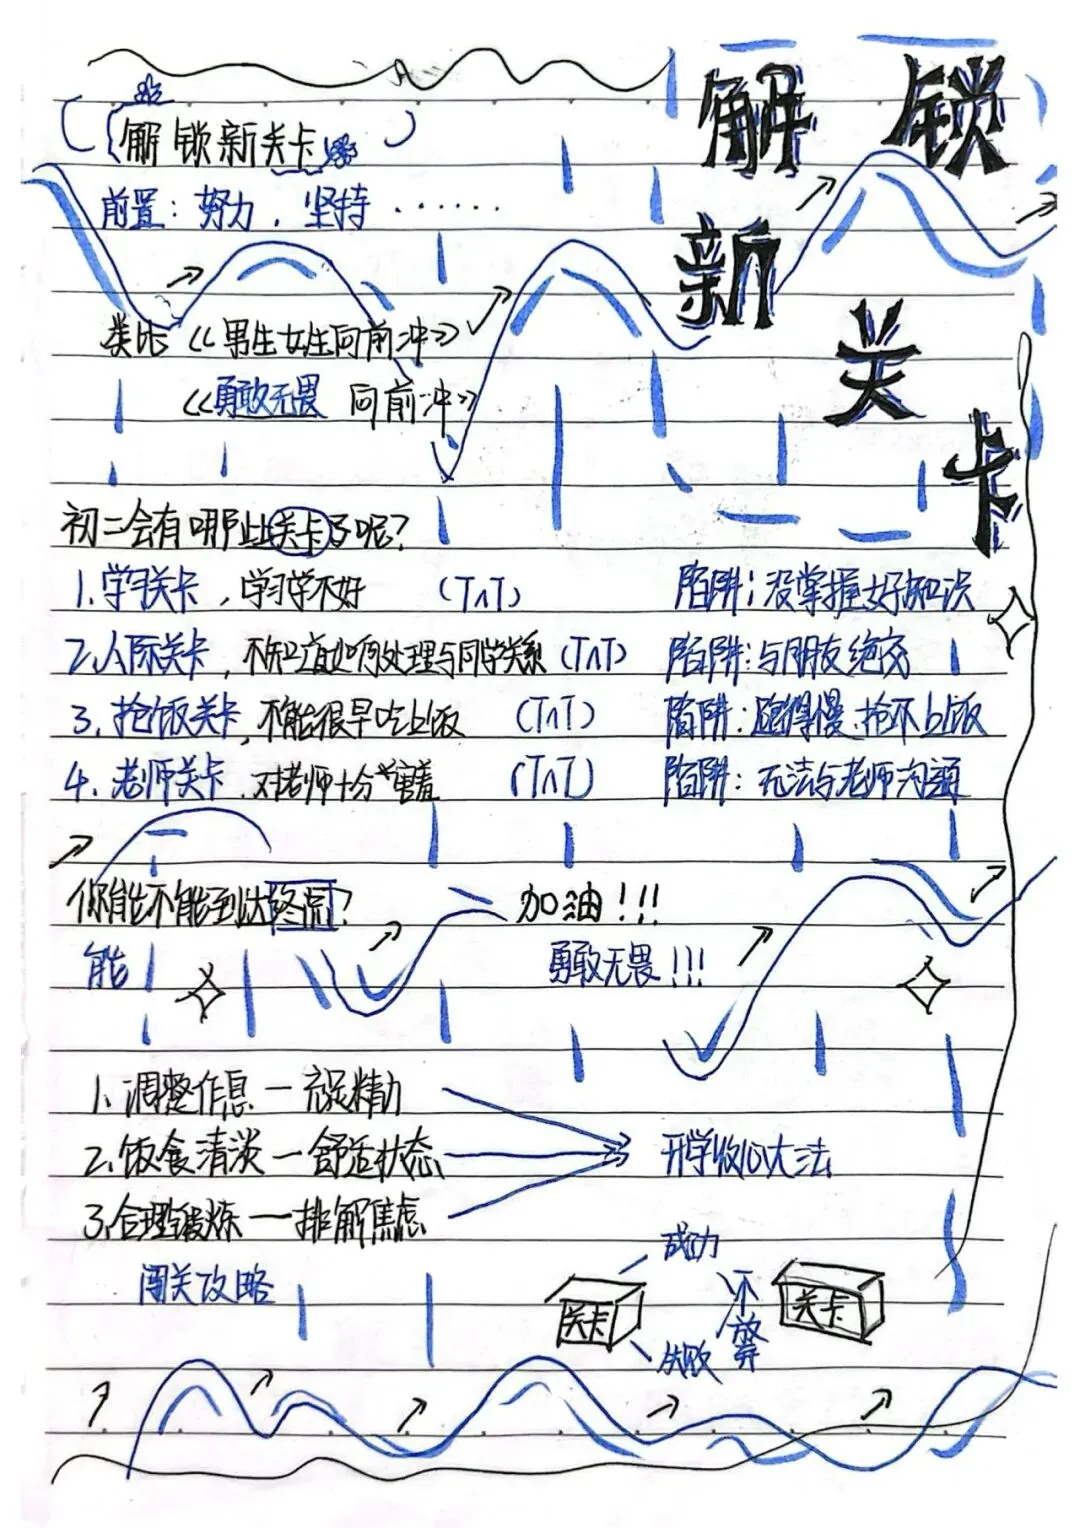 解锁新关卡
解锁新关卡
前置：努力，坚持……
类比《男生女生向前冲》
《勇敢无畏 向前冲》
初二会有哪些关卡了呢？
1.学习关卡，学习学不好 (T∧T) 陷阱：没掌握好知识
2.人际关卡，不知道如何处理与同学关系 (T∧T) 陷阱：与朋友绝交
3.抢饭关卡，不能很早吃上饭 (T∧T) 陷阱：跑得慢，抢不上饭
4.老师关卡，对老师十分害羞 (T∧T) 陷阱：无法与老师沟通
你能不能到达终点？ 加油！！！
能 勇敢无畏！！！
1.调整作息—充足精力
2.饭食清淡—舒适状态 开学收心大法
3.合理锻炼—排解焦虑
闯关攻略
成功
关卡 不放弃 关卡
失败